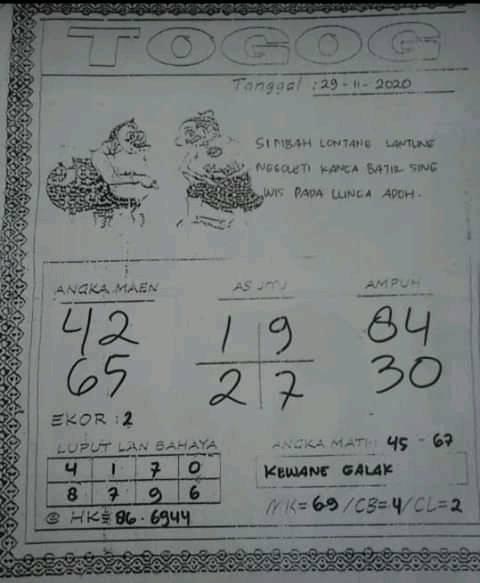 TOGOG
Tanggal : 29-11-2020
SIMBAH LONTANG LANTUNG
NGGOLETI KANCA BATIR SING
WIS PADA LUNGA ADOH.
ANGKA MAEN
42
65
EKOR : 2
AS JITU
1 9
2 7
AMPUH
84
30
LUPUT LAN BAHAYA
4 1 7 0
8 7 9 6
HK= 86 - 6944
ANGKA MATI: 45 - 67
KEWANE GALAK
MK= 69 / CB= 4 / CL= 2